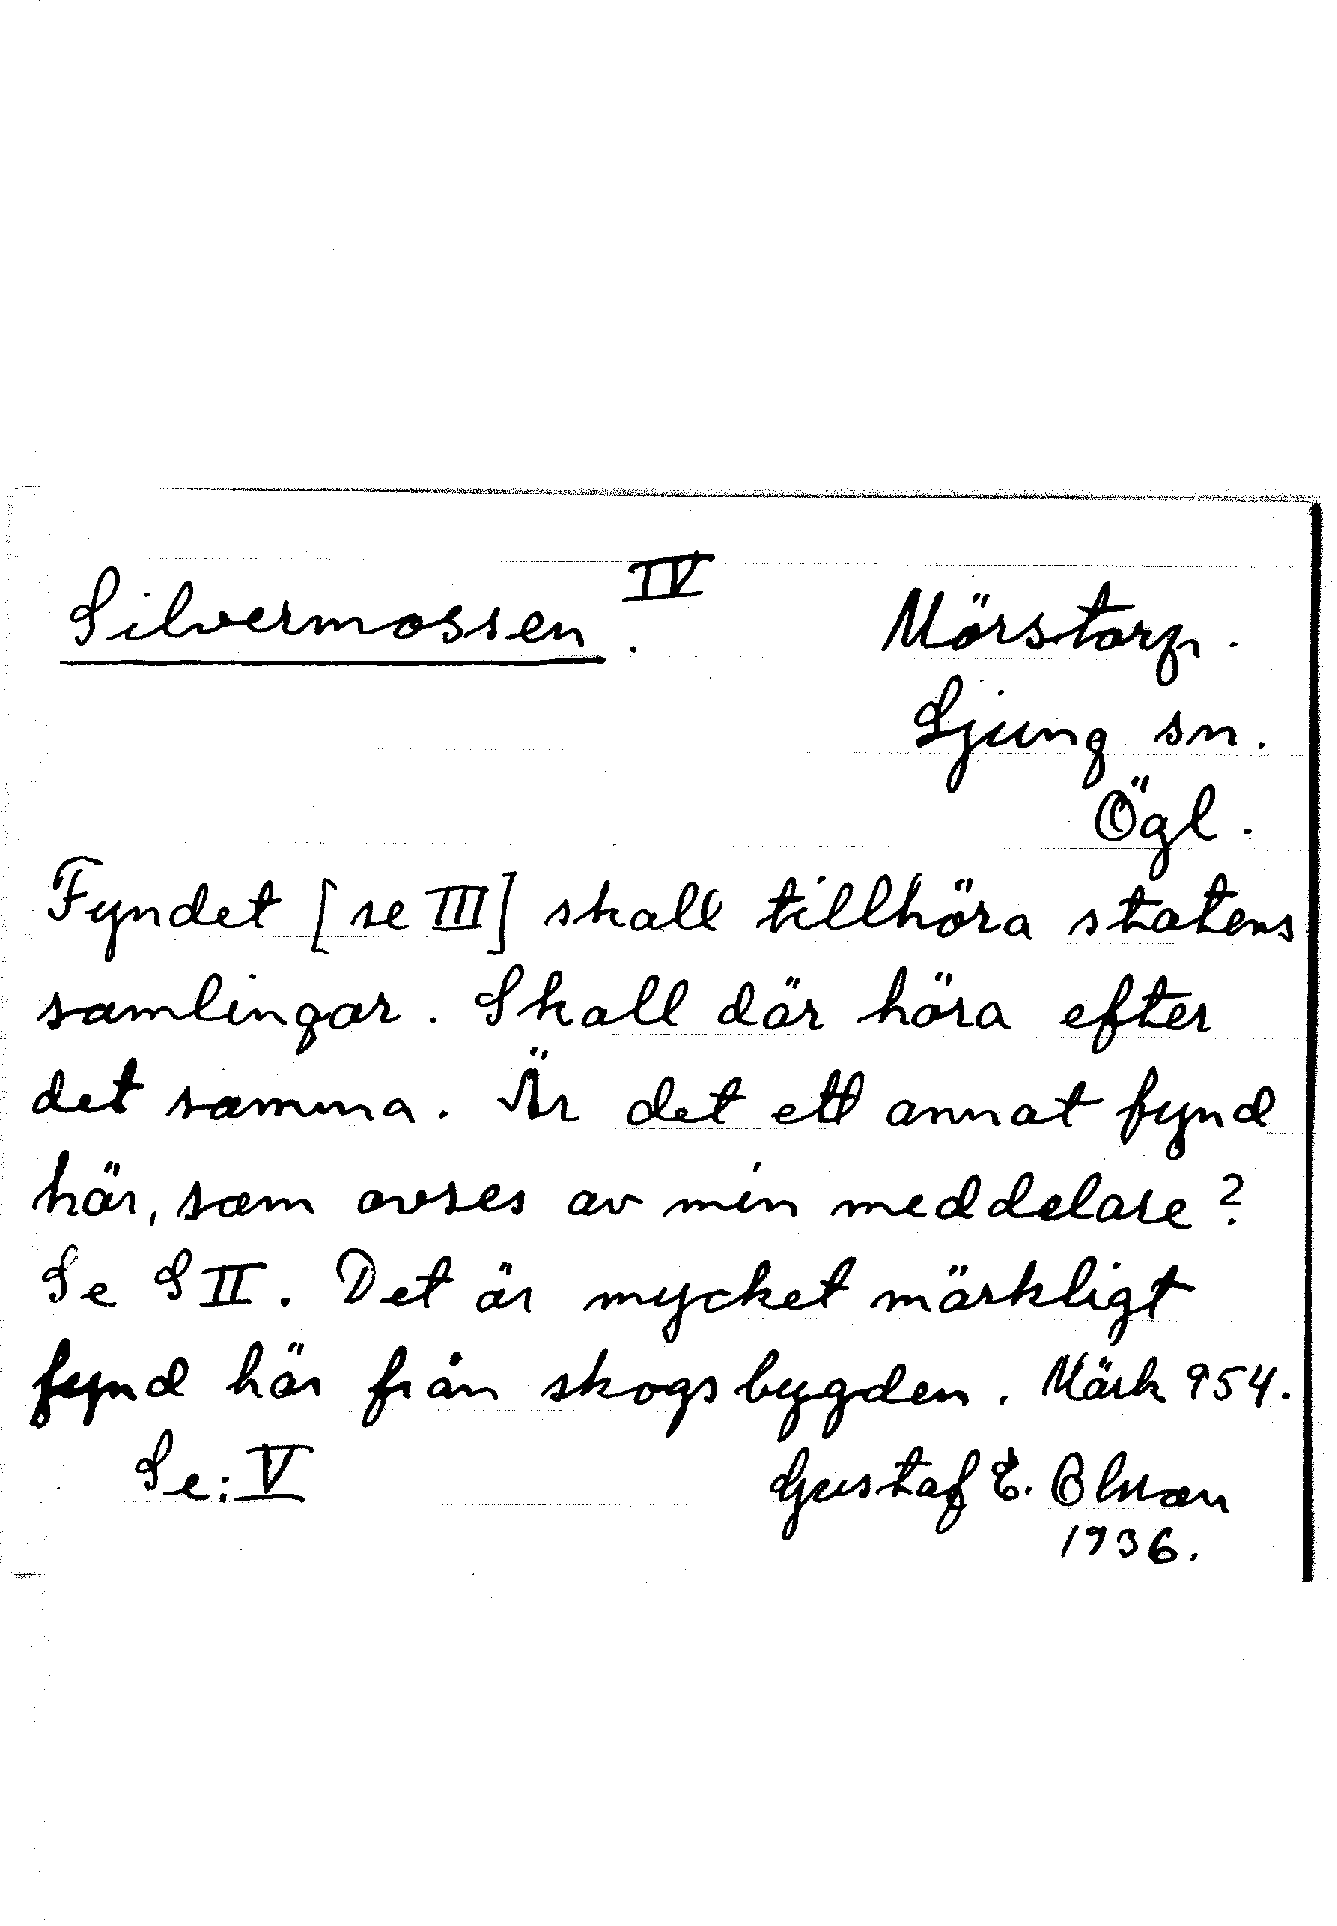 Silvermossen. IV
Mörstorp.
Ljung sn.
Ögl.
Fyndet [se III] skall tillhöra statens
samlingar. Skall där höra efter
det samma. Är det ett annat fynd
här, som avses av min meddelare?
Se S II. Det är mycket märkligt
fynd här från skogsbygden. Märk 954.
Se: V
Gustaf E. Olsson
1936.